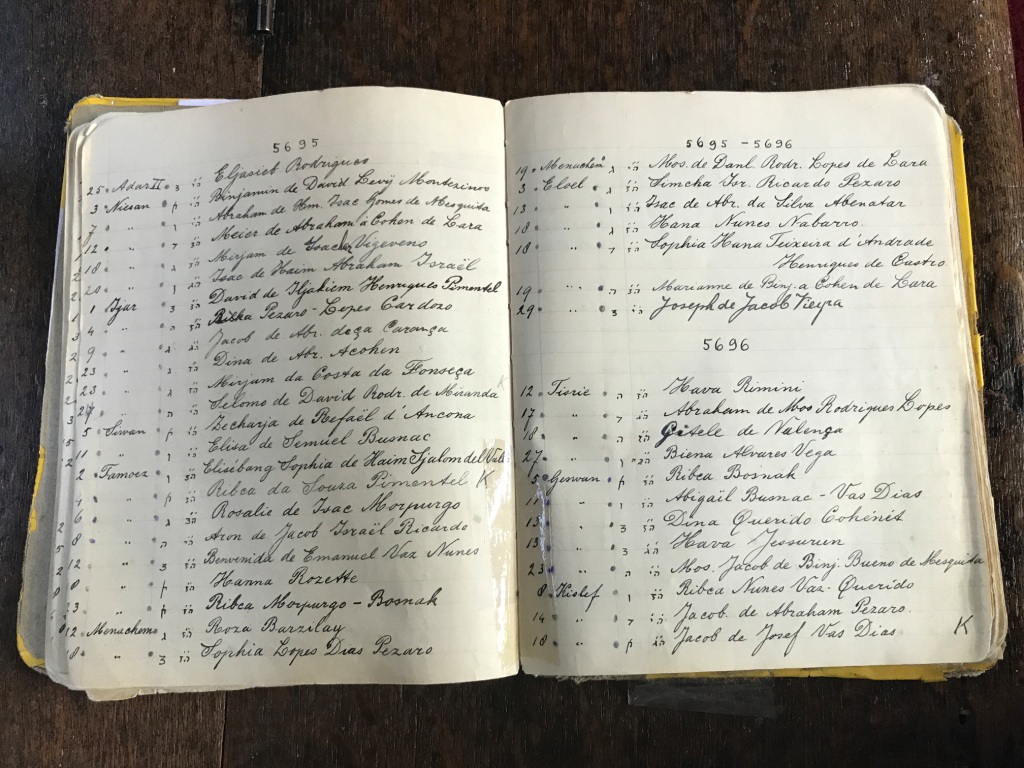 5695
25 Adar II Eljasieb Rodrigues
3 Nissan Binjamin de David Levij Montezinos
7 " Abraham de Hm. Isac Gomes de Mesquita
12 " Meier de Abraham a Cohen de Lara
18 " Mirjam de Isaac Vigeveno
20 " Isac de Haim Abraham Israël
1 Ijar David de Iljakiem Henriques Pimentel
4 " Ribka Pezaro-Lopes Cardozo
9 " Jacob de Abr. deça Carança
23 " Dina de Abr. Acohen
23 " Mirjam da Costa da Fonseça
27 " Selomo de David Rodr. de Miranda K
5 Siwan Zecharja de Refaël d'Ancona
11 " Elisa de Semuel Busnac
2 Tamoez Elisebang Sophia de Haim Sjalom del Valle
4 " Ribca da Souza Pimentel K
6 " Rosalie de Isac Morpurgo
8 " Aron de Jacob Israël Ricardo
12 " Benvenida de Emanuel Vaz Nunes
" Hanna Rozette
23 " Ribca Morpurgo - Bosnak
12 Menachem Roza Barzilay
18 " Sophia Lopes Dias Pezaro
5695 - 5696
19 Menachem ג Mos. de Danl. Rodr. Lopes de Lara
3 Eloel Simcha Isr. Ricardo Pezaro
13 " ו Isac de Abr. da Silva Abenatar
18 " ד Hana Nunes Nabarro
18 " ד Sophia Hana Teixeira d'Andrade
Henriques de Castro
19 " ה Marianne de Binj. a Cohen de Lara
29 " Joseph de Jacob Vieyra
5696
12 Tisrie ה Hava Rimini
17 " ד Abraham de Mos Rodrigues Lopes
18 " ה Gitele de Valença
27 " Biena Alvares Vega
5 Geswan Ribca Bosnak
11 " Abigaïl Busnac - Vas Dias
13 " Dina Querido Cohénit
13 " Hava Jessurun
23 " ה Mos. Jacob de Binj. Bueno de Mesquita
8 Kislef ו Ribca Nunes Vaz. Querido
14 " Jacob. de Abraham Pezaro.
18 " Jacob de Josef Vas Dias K